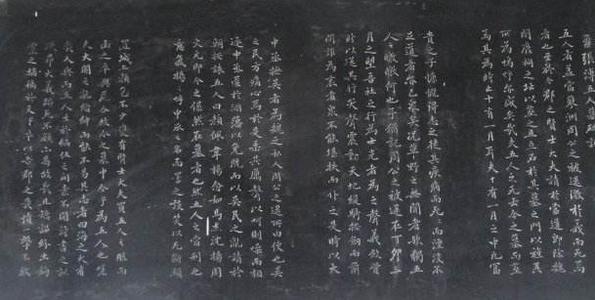 五人者蓋當蓼洲周公之被逮激於義而死焉
者也至於今郡之賢士大夫請於當道即除魏
閹廢祠之址以葬之且立石於其墓之門以旌其
所為嗚呼亦盛矣哉夫五人之死去今之墓而葬
焉其為時止十有一月耳夫十有一月之中凡富
貴之子慷慨得志之徒其疾病而死死而湮沒不
足道者亦已眾矣況草野之無聞者歟獨五
人之皦皦何也予猶記周公之被逮在丁卯三
月之望吾社之行為士先者為之聲義斂貲
財以送其行哭聲震動天地緹騎按劍而前
問誰為哀者眾不能堪抶而仆之是時以大
中丞撫吳者為魏之私人周公之逮所由使也吳
之民方痛心焉於是乘其厲聲以呵則噪而相
逐中丞匿於溷藩以免既而以吳民之亂請於
朝按誅五人曰顏佩韋楊念如馬杰沈揚周
文元即今之傫然在墓者也然五人之當刑也
意氣揚揚呼中丞之名而詈之談笑以死斷頭
置城上顏色不少變有賢士大夫發五十金買五人之脰而
函之卒與尸合故今之墓中全乎為五人也嗟
夫大閹之亂縉紳而能不易其志者四海之大有
幾人歟而五人生於編伍之間素不聞詩書之訓
激昂大義蹈死不顧亦曷故哉且矯詔紛出鉤
黨之捕遍於天下卒以吾郡之發憤一擊不敢